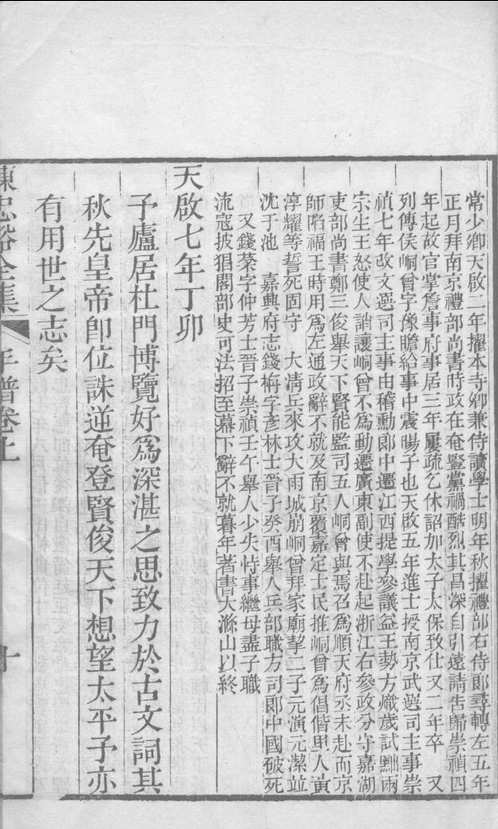 常少卿天啟二年擢本寺卿兼侍讀學士明年秋擢禮部右侍郎尋轉左五年
正月拜南京禮部尚書時政在奄豎黨禍酷烈其昌深自引遠請告歸崇禎四
年起故官掌詹事府事居三年屢疏乞休詔加太子太保致仕又二年卒　又
列傳侯峒曾字豫瞻給事中震暘子也天啟五年進士授南京武選司主事崇
禎七年改文選司主事由稽勳郎中遷江西提學參議益王勢方熾歲試黜兩
宗生王怒使人誚讓峒曾不為動遷廣東副使不赴起浙江右參政分守嘉湖
吏部尚書鄭三俊舉天下賢能監司五人峒曾與焉召為順天府丞未赴而京
師陷福王時用為左通政辭不就及南京覆嘉定士民推峒曾為倡偕里人黃
淳耀等誓死固守　大淸兵來攻大雨城崩峒曾拜家廟挈二子元演元潔並
沈于池　嘉興府志錢栴字彥林士晉子癸酉舉人兵部職方司郎中國破死
又錢棻字仲芳士晉子崇禎壬午舉人少失恃事繼母盡子職
流寇披猖閣部史可法招至幕下辭不就暮年著書大滌山以終
天啟七年丁卯
予廬居杜門博覽好為深湛之思致力於古文詞其
秋先皇帝卽位誅逆奄登賢俊天下想望太平予亦
有用世之志矣
陳忠裕全集　年譜卷上　十